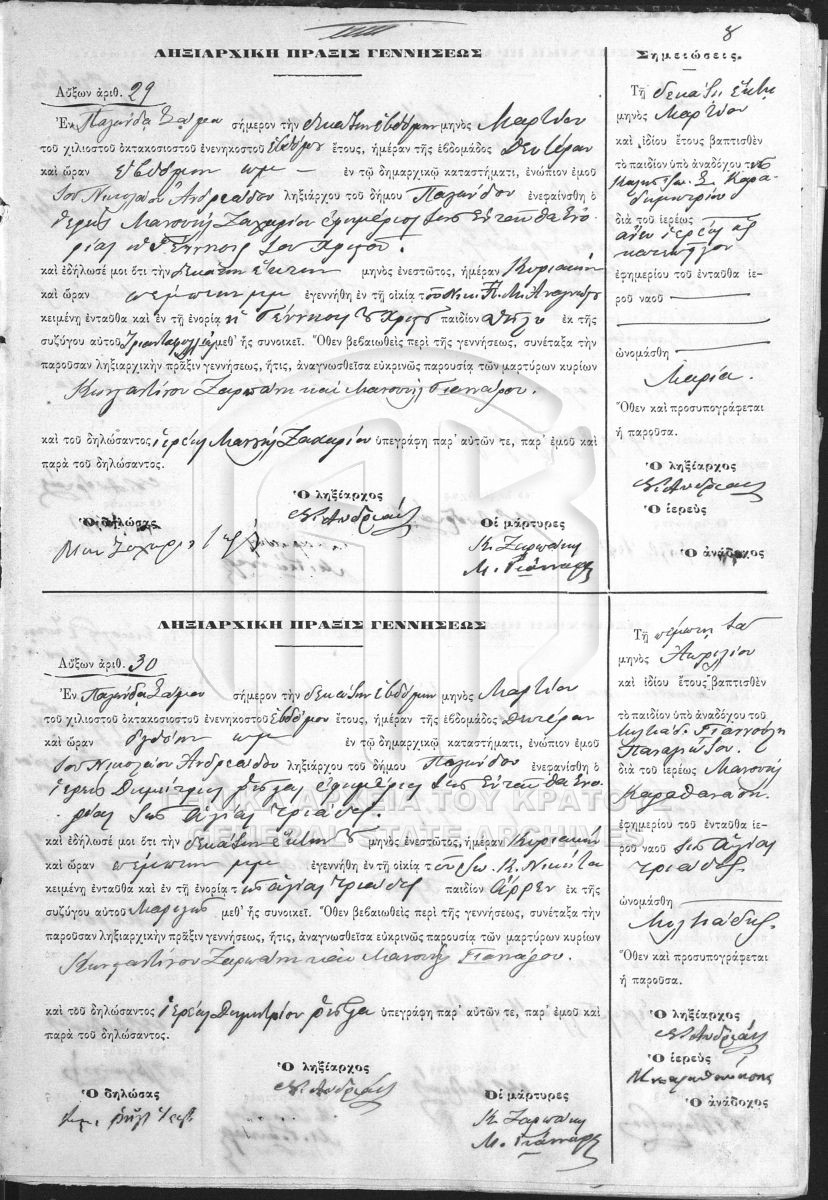 8
ΛΗΞΙΑΡΧΙΚΗ ΠΡΑΞΙΣ ΓΕΝΝΗΣΕΩΣ
Αὔξων ἀριθ. 29
Ἐν Παλαιόδα Σάμου σήμερον τὴν δεκάτην ἑβδόμην μηνὸς Μαρτίου
τοῦ χιλιοστοῦ ὀκτακοσιοστοῦ ἐνενηκοστοῦ ἑβδόμου ἔτους, ἡμέραν τῆς ἑβδομάδος Δευτέραν
καὶ ὥραν ἑβδόμην π.μ. ἐν τῷ δημαρχικῷ καταστήματι, ἐνώπιον ἐμοῦ
τοῦ Νικολάου Ἀνδρεάδου ληξιάρχου τοῦ δήμου ἐνεφανίσθη ὁ
ἱερεὺς Μανουὴλ Ζαχαρίου ἐφημέριος τῆς ἐνταῦθα ἐνο-
ρίας ἡ Γέννησις τοῦ Χριστοῦ.
καὶ ἐδήλωσέ μοι ὅτι τὴν δεκάτην ἕκτην μηνὸς ἐνεστῶτος, ἡμέραν Κυριακὴν
καὶ ὥραν πέμπτην μ.μ. ἐγεννήθη ἐν τῇ οἰκίᾳ τοῦ Νικ. Π. Μ.
κειμένῃ ἐνταῦθα καὶ ἐν τῇ ἐνορίᾳ ἡ Γέννησις τοῦ Χριστοῦ παιδίον θῆλυ ἐκ τῆς
συζύγου αὐτοῦ μεθ' ἧς συνοικεῖ. Ὅθεν βεβαιωθεὶς περὶ τῆς γεννήσεως, συνέταξα τὴν
παροῦσαν ληξιαρχικὴν πρᾶξιν γεννήσεως, ἥτις, ἀναγνωσθεῖσα εὐκρινῶς παρουσίᾳ τῶν μαρτύρων κυρίων
Κωνσταντίνου Ζαρπάνη καὶ Μανουὴλ Γιαννάρου.
καὶ τοῦ δηλώσαντος ἱερέως Μανουὴλ Ζαχαρίου ὑπεγράφη παρ' αὐτῶν τε, παρ' ἐμοῦ καὶ
παρὰ τοῦ δηλώσαντος.
Ὁ ληξίαρχος
Ν. Ἀνδρεάδης
Ὁ δηλώσας
Οἱ μάρτυρες
Κ. Ζαρπάνης
Μ. Γιάνναρος
Σημειώσεις.
Τῇ δεκάτῃ ἕκτῃ
μηνὸς Μαρτίου
καὶ ἰδίου ἔτους βαπτισθὲν
τὸ παιδίον ὑπὸ ἀναδόχου
Καρα-
δημητρίου
διὰ τοῦ ἱερέως
ἄνευ ἱερέως
ἐφημερίου τοῦ ἐνταῦθα ἱε-
ροῦ ναοῦ
ὠνομάσθη
Μαρία.
Ὅθεν καὶ προσυπογράφεται
ἡ παροῦσα.
Ὁ ληξίαρχος
Ν. Ἀνδρεάδης
Ὁ ἱερεὺς
Ὁ ἀνάδοχος
ΛΗΞΙΑΡΧΙΚΗ ΠΡΑΞΙΣ ΓΕΝΝΗΣΕΩΣ
Αὔξων ἀριθ. 30
Ἐν Σάμου σήμερον τὴν δεκάτην ἑβδόμην μηνὸς Μαρτίου
τοῦ χιλιοστοῦ ὀκτακοσιοστοῦ ἐνενηκοστοῦ ἑβδόμου ἔτους, ἡμέραν τῆς ἑβδομάδος Δευτέραν
καὶ ὥραν ὀγδόην π.μ. ἐν τῷ δημαρχικῷ καταστήματι, ἐνώπιον ἐμοῦ
τοῦ Νικολάου Ἀνδρεάδου ληξιάρχου τοῦ δήμου ἐνεφανίσθη ὁ
ἱερεὺς Δημήτριος ἐφημέριος τῆς ἐνταῦθα ἐνο-
ρίας τῆς ἁγίας Τριάδος.
καὶ ἐδήλωσέ μοι ὅτι τὴν δεκάτην ἕκτην μηνὸς ἐνεστῶτος, ἡμέραν Κυριακὴν
καὶ ὥραν πέμπτην μ.μ. ἐγεννήθη ἐν τῇ οἰκίᾳ τοῦ Κ. Νικήτα
κειμένῃ ἐνταῦθα καὶ ἐν τῇ ἐνορίᾳ τῆς ἁγίας Τριάδος παιδίον ἄρρεν ἐκ τῆς
συζύγου αὐτοῦ μεθ' ἧς συνοικεῖ. Ὅθεν βεβαιωθεὶς περὶ τῆς γεννήσεως, συνέταξα τὴν
παροῦσαν ληξιαρχικὴν πρᾶξιν γεννήσεως, ἥτις, ἀναγνωσθεῖσα εὐκρινῶς παρουσίᾳ τῶν μαρτύρων κυρίων
Κωνσταντίνου Ζαρπάνη καὶ Μανουὴλ Γιαννάρου.
καὶ τοῦ δηλώσαντος ἱερέως Δημητρίου ὑπεγράφη παρ' αὐτῶν τε, παρ' ἐμοῦ καὶ
παρὰ τοῦ δηλώσαντος.
Ὁ ληξίαρχος
Ν. Ἀνδρεάδης
Ὁ δηλώσας
Οἱ μάρτυρες
Κ. Ζαρπάνης
Μ. Γιάνναρος
Τῇ πέμπτῃ
μηνὸς Ἀπριλίου
καὶ ἰδίου ἔτους βαπτισθὲν
τὸ παιδίον ὑπὸ ἀναδόχου τοῦ
Μιλτιάδ. Γιαννούλη
διὰ τοῦ ἱερέως Μανουὴλ
Καραθανάση
ἐφημερίου τοῦ ἐνταῦθα ἱε-
ροῦ ναοῦ τῆς ἁγίας
Τριάδος
ὠνομάσθη
Μιλτιάδης.
Ὅθεν καὶ προσυπογράφεται
ἡ παροῦσα.
Ὁ ληξίαρχος
Ν. Ἀνδρεάδης
Ὁ ἱερεὺς
Ὁ ἀνάδοχος
ΓΕΝΙΚΑ ΑΡΧΕΙΑ ΤΟΥ ΚΡΑΤΟΥΣ
GENERAL STATE ARCHIVES